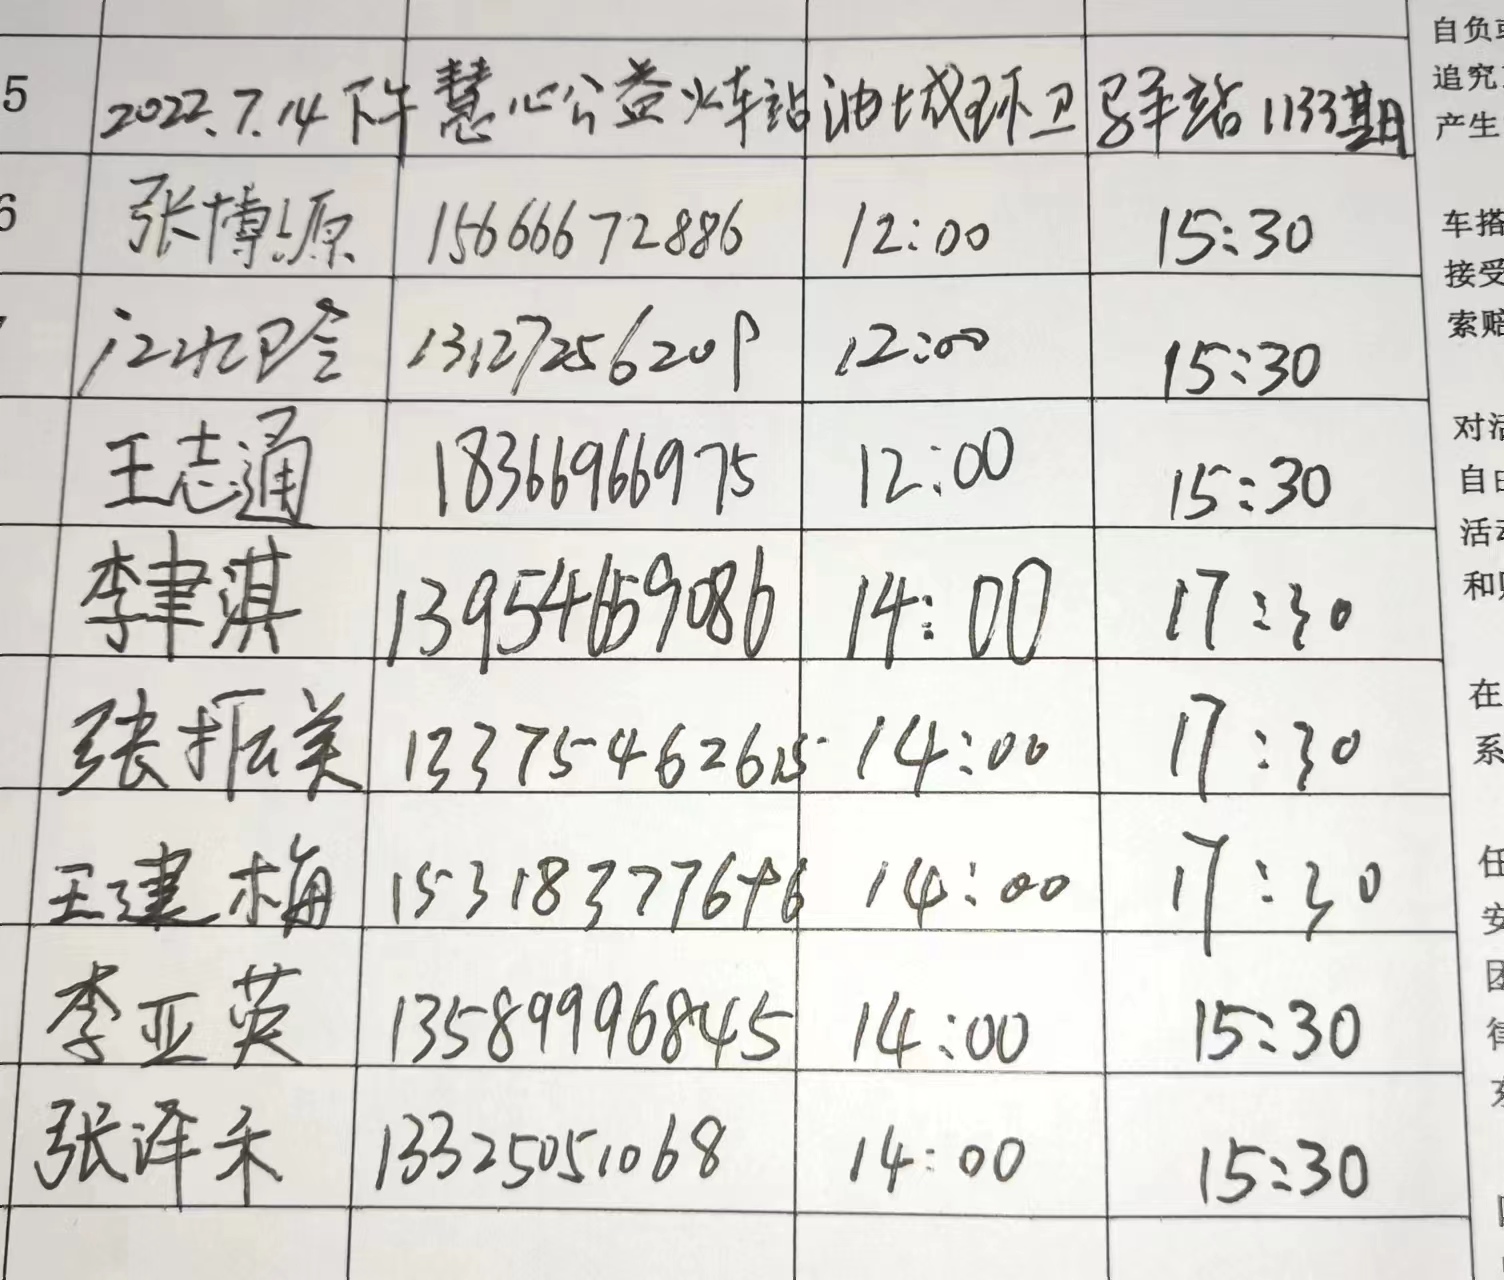 5 2022.7.14下午 慧心公益火车站油城环卫驿站1133期
6 张博源 15666672886 12:00 15:30
13127256209 12:00 15:30
王志通 18366966975 12:00 15:30
李聿淇 13954659086 14:00 17:30
张振美 13375462615 14:00 17:30
王建梅 15318377646 14:00 17:30
李亚英 13589996845 14:00 15:30
张泽禾 13325051068 14:00 15:30
自负
追究
产生
车搭
接受
索赔
对活
自由
活动
和
在
系
任
安
团
律